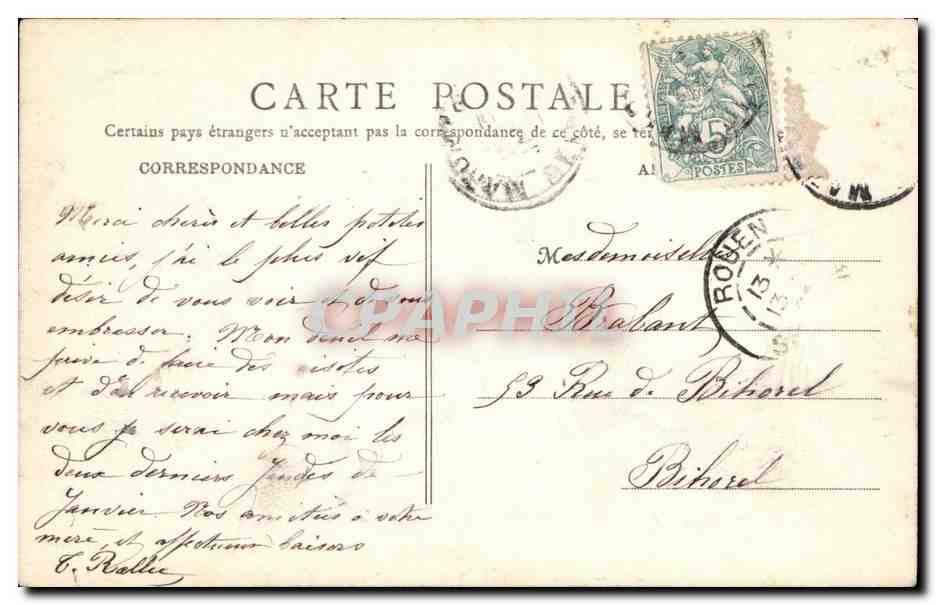 CARTE POSTALE
Certains pays étrangers n'acceptant pas la correspondance de ce côté, se re
CORRESPONDANCE
Merci chères et belles petites
amies, j'ai le plus vif
désir de vous voir et de vous
embrasser. Mon deuil me
prive de faire des visites
et d'en recevoir mais pour
vous je serai chez moi les
deux derniers Jeudis de
Janvier. Nos amitiés à votre
mère, et affectueux baisers
POSTES
5
Mesdemoiselles
Brabant
53 Rue de Bihorel
Bihorel
ROUEN
13
13
CPAPHIL